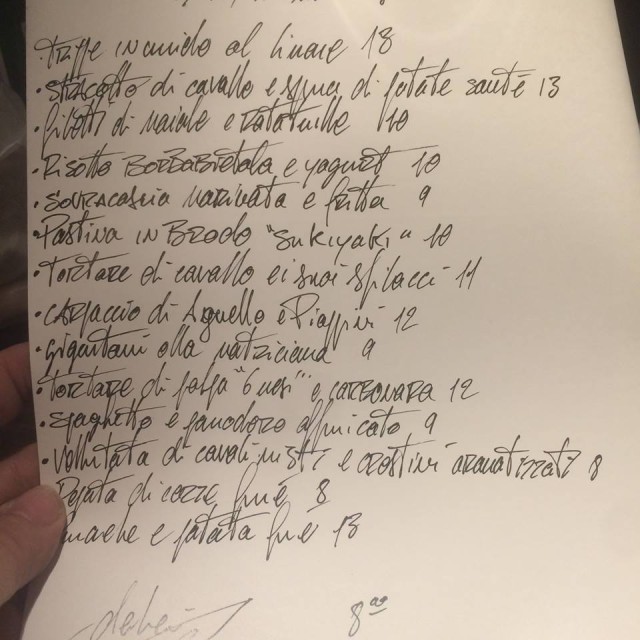 · Trippe in umido al limone 18
· stracotto di cavallo e spuma di patate sautè 13
· filetti di maiale e ratatuille 10
· Risotto Barbabietola e yogurt 10
· Sovracoscia marinata e fritta 9
· Pastina in Brodo "Sukiyaki" 10
· Tartare di cavallo e i suoi sfilacci 11
· carpaccio di Agnello e Pioppini 12
· gigantoni alla matriciana 9
· tartare di "6 mesi" e carbonara 12
· spaghetto e pomodoro affumicato 9
· Vellutata di cavoli misti e crostini aromatizzati 8
di cozze 8
Lumache e patata 13
8⁰⁰